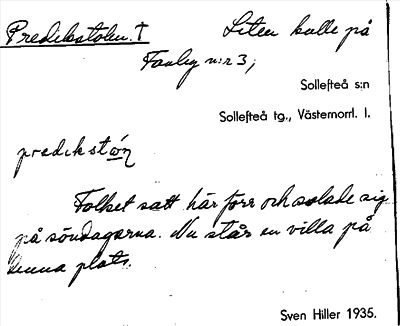 Predikstolen. † Liten kulle på
Tanlig n:r 3;
Sollefteå s:n
Sollefteå tg., Västernorrl. l.
predikstón
Folket satt här förr och solade sig
på söndagarna. Nu står en villa på
denna plats.
Sven Hiller 1935.